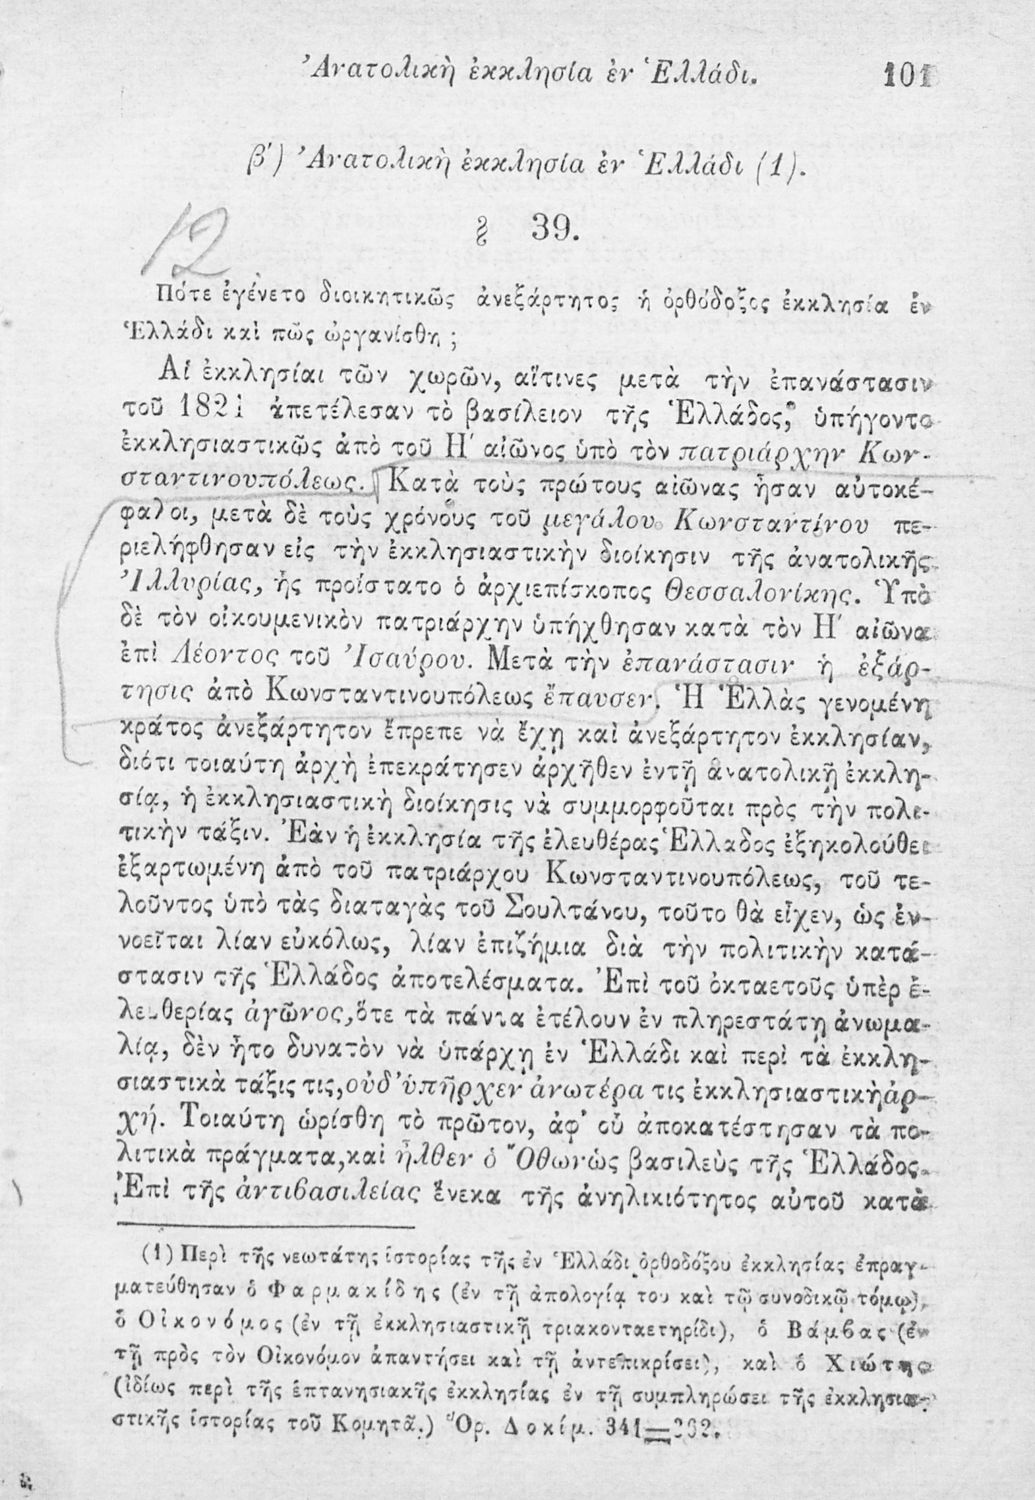 Ἀνατολικὴ ἐκκλησία ἐν Ἑλλάδι. 101
β΄) Ἀνατολικὴ ἐκκλησία ἐν Ἑλλάδι (1).
§ 39.
12
Πότε ἐγένετο διοικητικῶς ἀνεξάρτητος ἡ ὀρθόδοξος ἐκκλησία ἐν
Ἑλλάδι καὶ πῶς ὠργανίσθη ;
Αἱ ἐκκλησίαι τῶν χωρῶν, αἵτινες μετὰ τὴν ἐπανάστασιν
τοῦ 1821 ἀπετέλεσαν τὸ βασίλειον τῆς Ἑλλάδος, ὑπήγοντο
ἐκκλησιαστικῶς ἀπὸ τοῦ Η΄ αἰῶνος ὑπὸ τὸν πατριάρχην Κων-
σταντινουπόλεως. Κατὰ τοὺς πρώτους αἰῶνας ἦσαν αὐτοκέ-
φαλοι, μετὰ δὲ τοὺς χρόνους τοῦ μεγάλου Κωνσταντίνου πε-
ριελήφθησαν εἰς τὴν ἐκκλησιαστικὴν διοίκησιν τῆς ἀνατολικῆς
Ἰλλυρίας, ἧς προΐστατο ὁ ἀρχιεπίσκοπος Θεσσαλονίκης. Ὑπὸ
δὲ τὸν οἰκουμενικὸν πατριάρχην ὑπήχθησαν κατὰ τὸν Η΄ αἰῶνα
ἐπὶ Λέοντος τοῦ Ἰσαύρου. Μετὰ τὴν ἐπανάστασιν ἡ ἐξάρ-
τησις ἀπὸ Κωνσταντινουπόλεως ἔπαυσεν. Ἡ Ἑλλὰς γενομένη
κράτος ἀνεξάρτητον ἔπρεπε νὰ ἔχῃ καὶ ἀνεξάρτητον ἐκκλησίαν,
διότι τοιαύτη ἀρχὴ ἐπεκράτησεν ἀρχῆθεν ἐν τῇ ἀνατολικῇ ἐκκλη-
σίᾳ, ἡ ἐκκλησιαστικὴ διοίκησις νὰ συμμορφοῦται πρὸς τὴν πολι-
τικὴν τάξιν. Ἐὰν ἡ ἐκκλησία τῆς ἐλευθέρας Ἑλλάδος ἐξηκολούθει
ἐξαρτωμένη ἀπὸ τοῦ πατριάρχου Κωνσταντινουπόλεως, τοῦ τε-
λοῦντος ὑπὸ τὰς διαταγὰς τοῦ Σουλτάνου, τοῦτο θὰ εἶχεν, ὡς ἐν-
νοεῖται λίαν εὐκόλως, λίαν ἐπιζήμια διὰ τὴν πολιτικὴν κατά-
στασιν τῆς Ἑλλάδος ἀποτελέσματα. Ἐπὶ τοῦ ὀκταετοῦς ὑπὲρ ἐ-
λευθερίας ἀγῶνος, ὅτε τὰ πάντα ἐτέλουν ἐν πληρεστάτῃ ἀνωμα-
λίᾳ, δὲν ἦτο δυνατὸν νὰ ὑπάρχῃ ἐν Ἑλλάδι καὶ περὶ τὰ ἐκκλη-
σιαστικὰ τάξις τις, οὐδ' ὑπῆρχεν ἀνωτέρα τις ἐκκλησιαστικὴ ἀρ-
χή. Τοιαύτη ὡρίσθη τὸ πρῶτον, ἀφ' οὗ ἀποκατέστησαν τὰ πο-
λιτικὰ πράγματα, καὶ ἦλθεν ὁ Ὄθων ὡς βασιλεὺς τῆς Ἑλλάδος.
Ἐπὶ τῆς ἀντιβασιλείας ἕνεκα τῆς ἀνηλικιότητος αὐτοῦ κατὰ
(1) Περὶ τῆς νεωτάτης ἱστορίας τῆς ἐν Ἑλλάδι ὀρθοδόξου ἐκκλησίας ἐπραγ-
ματεύθησαν ὁ Φαρμακίδης (ἐν τῇ ἀπολογίᾳ του καὶ τῷ συνοδικῷ τόμῳ),
ὁ Οἰκονόμος (ἐν τῇ ἐκκλησιαστικῇ τριακονταετηρίδι), ὁ Βάμβας (ἐν
τῇ πρὸς τὸν Οἰκονόμον ἀπαντήσει καὶ τῇ ἀντεπικρίσει), καὶ ὁ Χιώτης
(ἰδίως περὶ τῆς ἑπτανησιακῆς ἐκκλησίας ἐν τῇ συμπληρώσει τῆς ἐκκλησια-
στικῆς ἱστορίας τοῦ Κομητᾶ.) Ὅρ. Δοκίμ. 341=362.